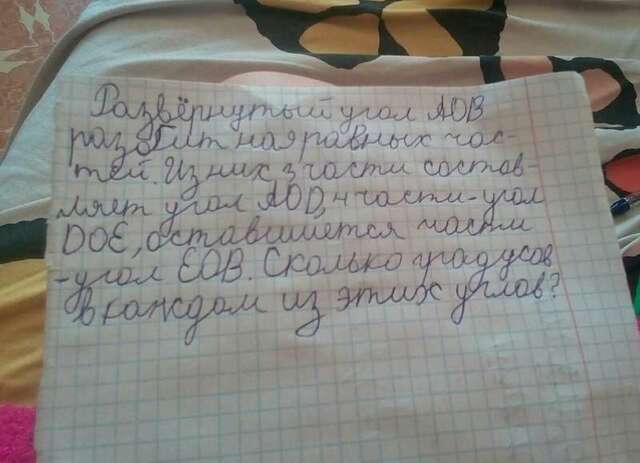 Развёрнутый угол АОВ
разбит на 9 равных час-
тей. Из них 3 части состав-
ляет угол АОD, 4 части-угол
DOE, оставшиется части
-угол ЕОВ. Сколько градусов
в каждом из этих углов?